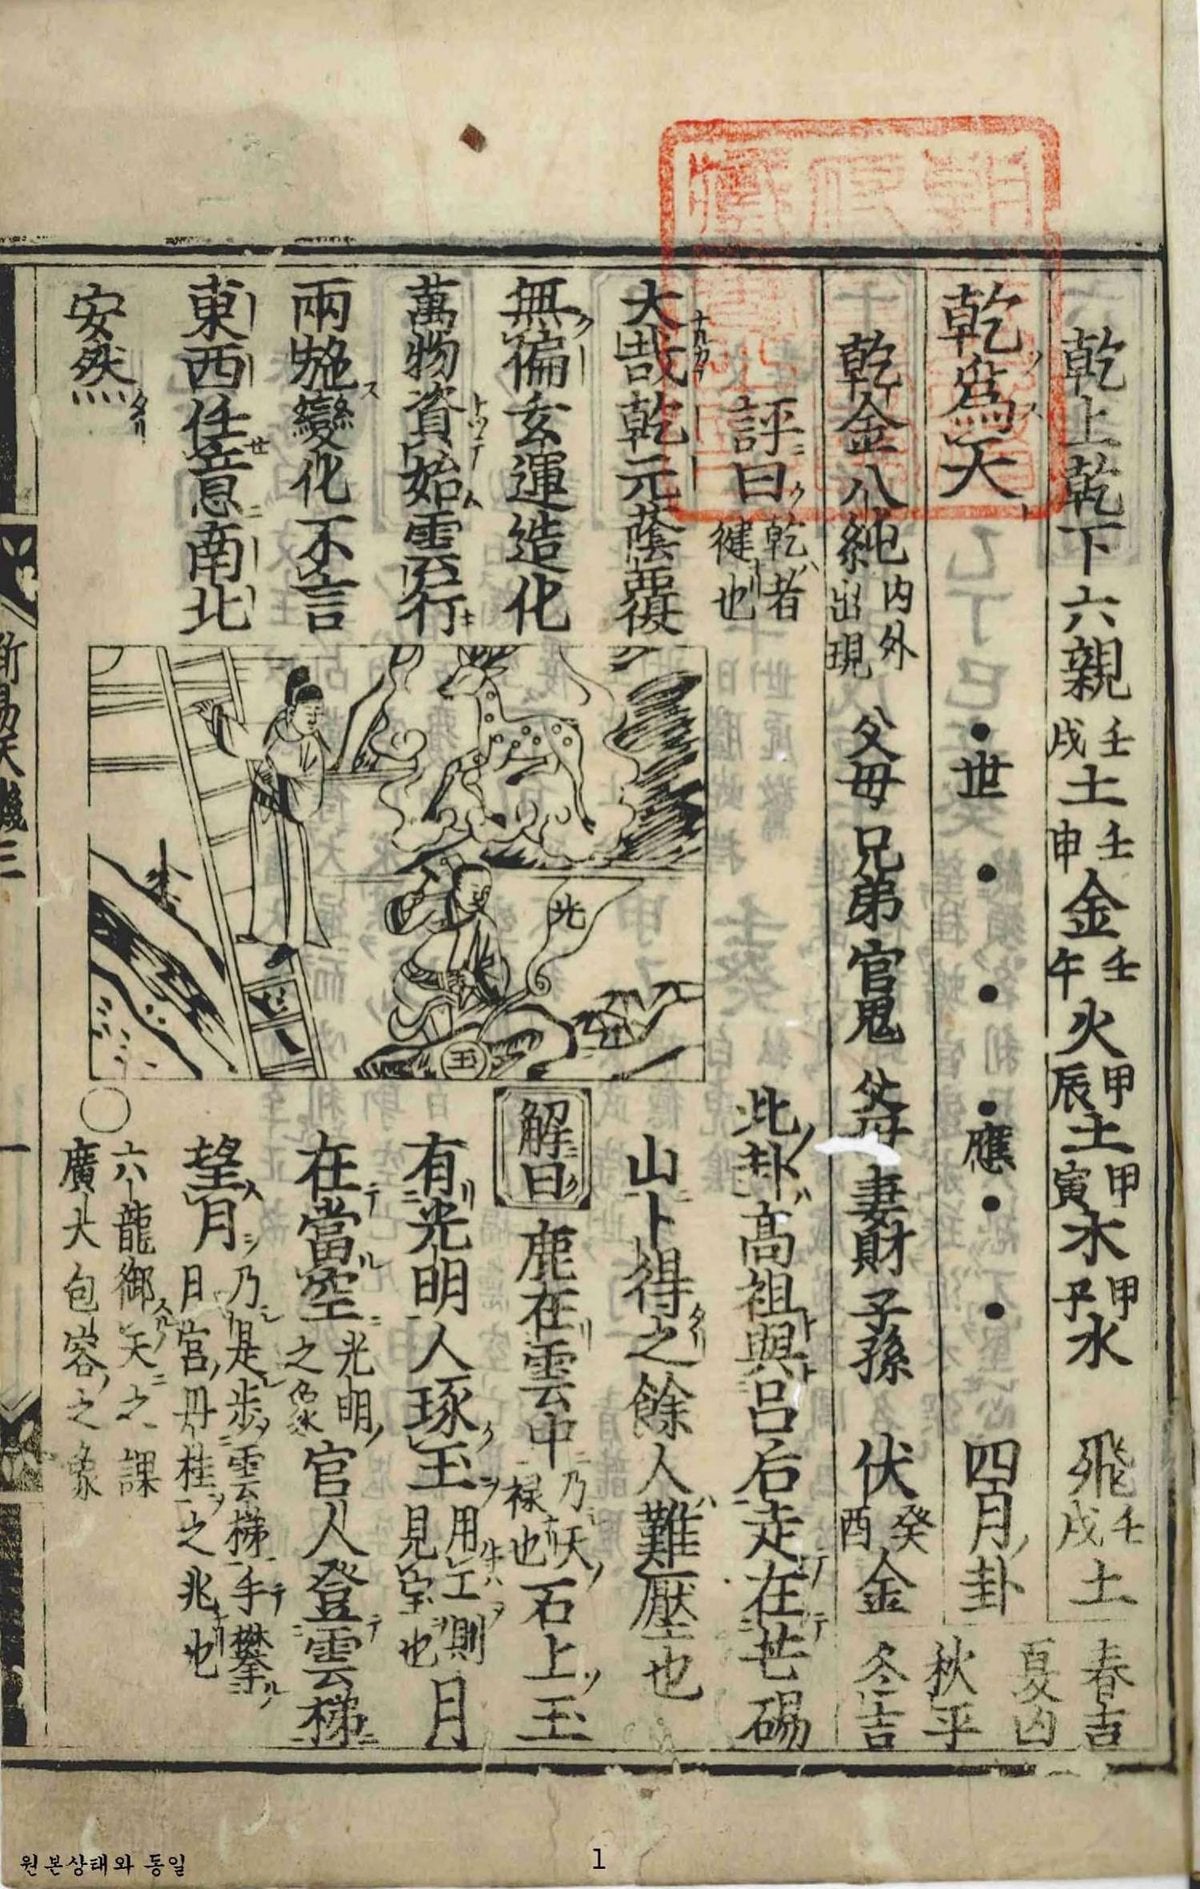 乾上乾下 六親 壬戌土 壬申金 壬午火 甲辰土 甲寅木 甲子水 飛 壬戌土
春吉
夏凶
秋平
冬吉
乾爲天 世 應 四月卦
乾金八純 內外出現 父母 兄弟 官鬼 父母 妻財 子孫 伏 癸酉金
評曰 乾者健也
此卦高祖與呂后走在芒碭
山卜得之餘人難壓也
大哉乾元蔭覆
無偏玄運造化
萬物資始雲行
雨施變化不言
東西任意南北
安然
光
玉
解曰 鹿在雲中 乃天祿也 石上玉
有光明人琢玉 用工則見宝也 月
在當空 光明之象 官人登雲梯
望月 乃是步雲梯手攀月宮丹桂之兆也
○ 六龍御天之課
廣大包容之象
新易天機 三
一
원본상태와 동일
1